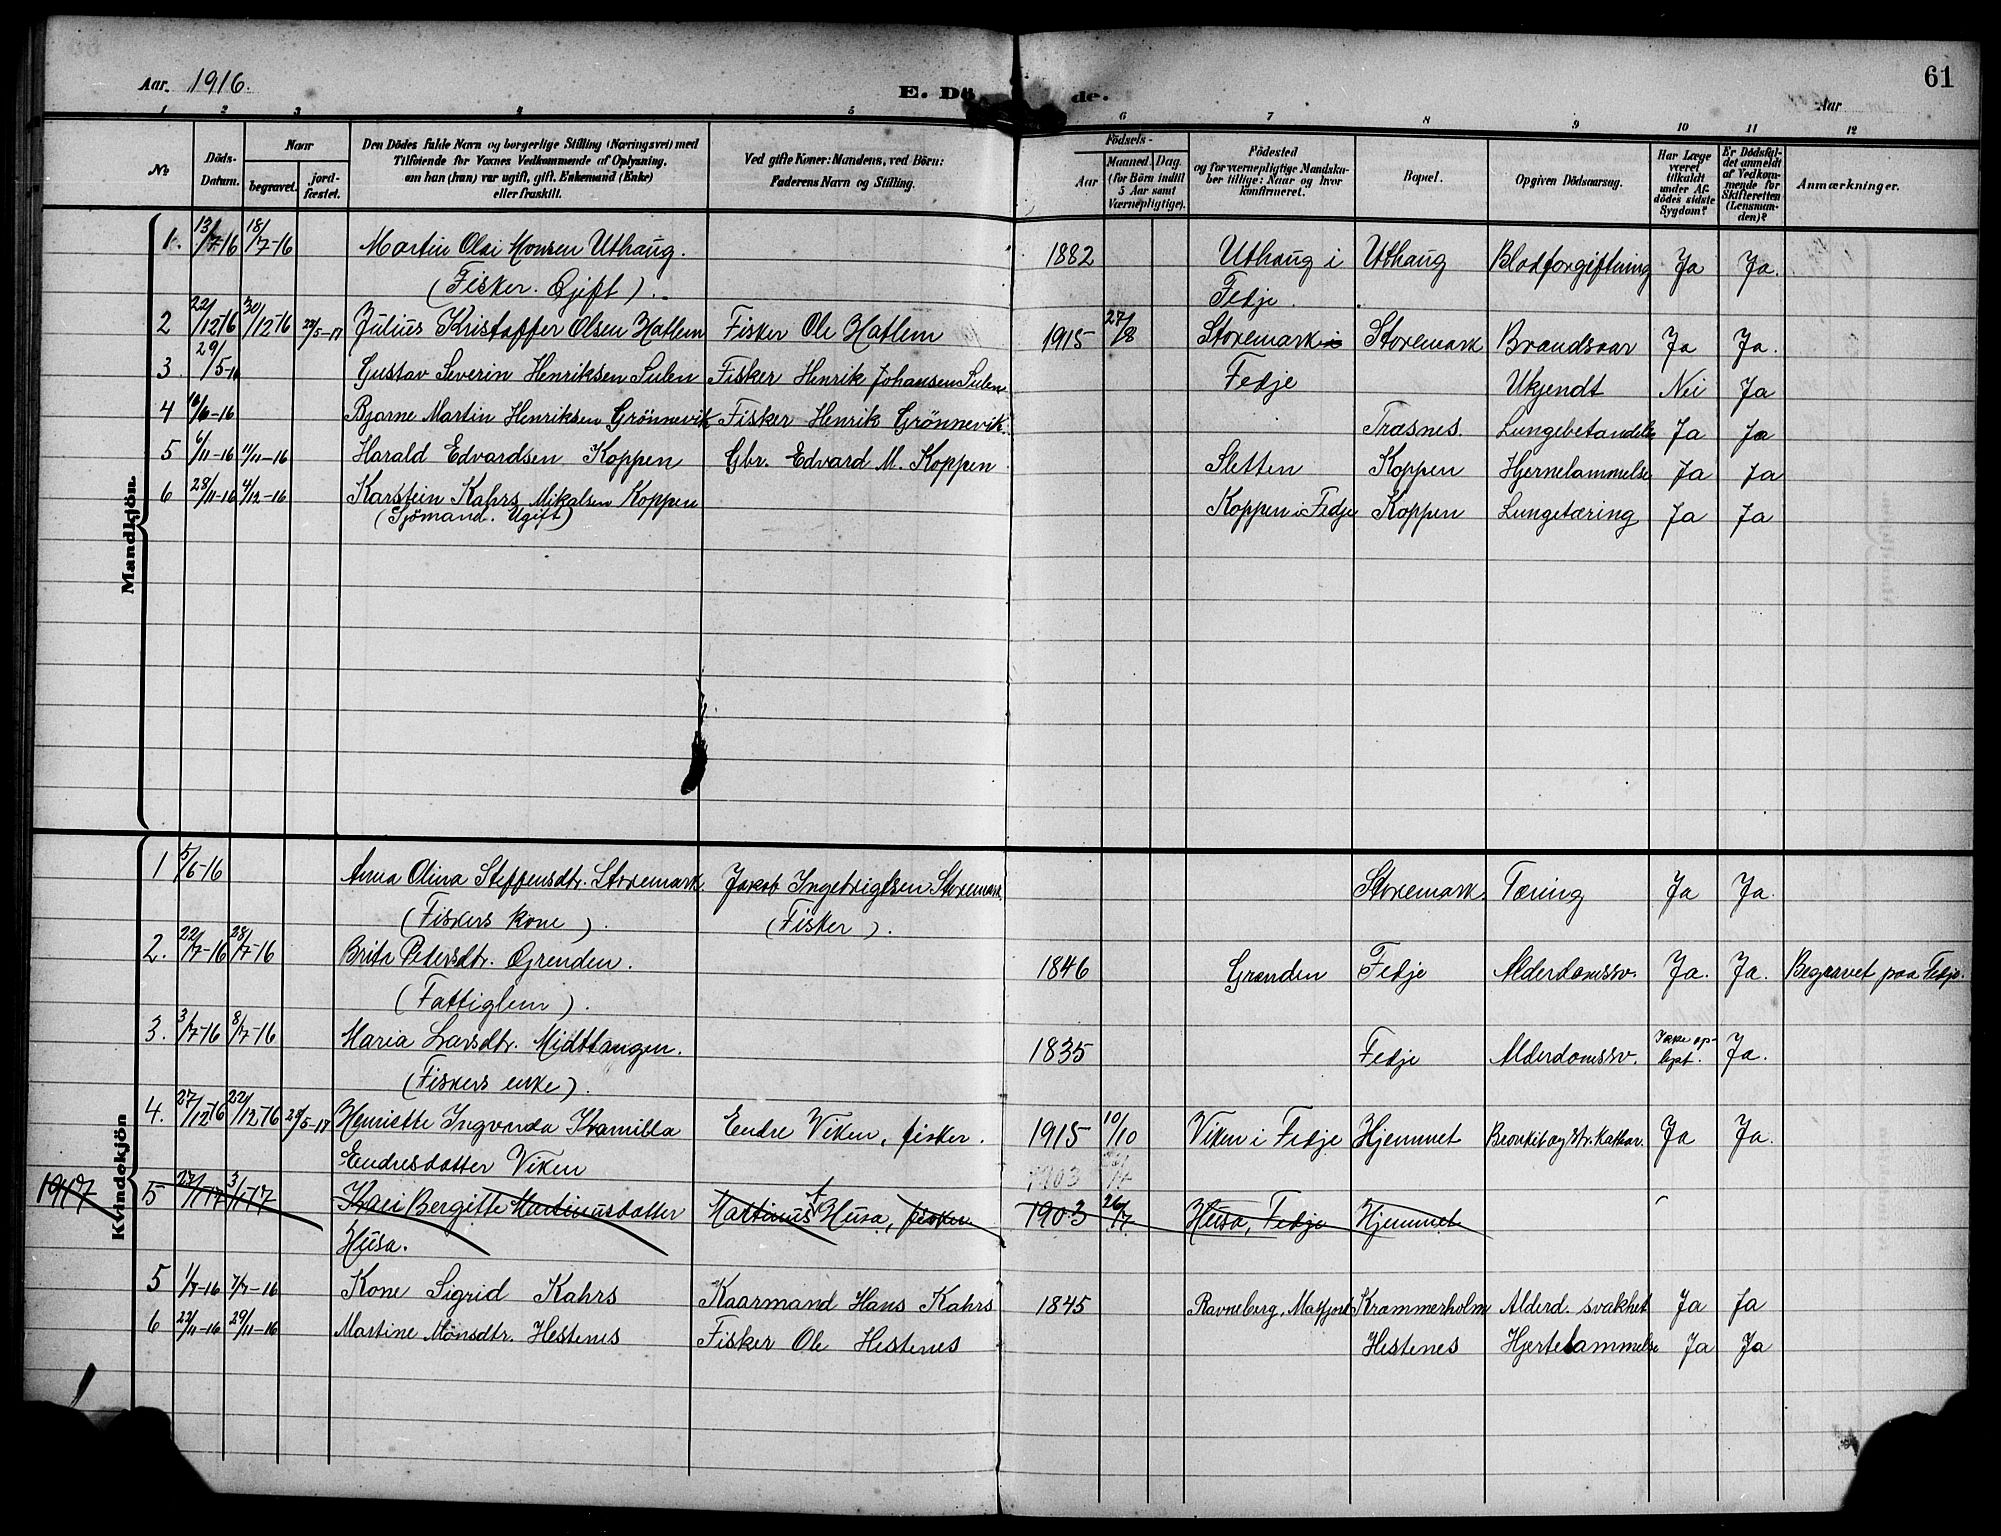 Aar. 1916.
E. Dö de.
61
Aar
1 2 3 4 5 6 7 8 9 10 11 12
No
Döds-
Datum.
Naar
begravet.
jord-
fæstet.
Den Dödes fulde Navn og borgerlige Stilling (Næringsvei) med
Tilföiende for Voxnes Vedkommende af Oplysning,
om han (hun) var ugift, gift, Enkemand (Enke)
eller fraskilt.
Ved gifte Koner: Mandens, ved Börn:
Faderens Navn og Stilling.
Födsels-
Aar
Maaned. Dag.
(for Börn indtil
5 Aar samt
Værnepligtige).
Födested
og for værnepligtige Mandska-
ber tillige: Naar og hvor
konfirmeret.
Bopæl.
Opgiven Dödsaarsag.
Har Læge
været
tilkaldt
under Af-
dödes sidste
Sygdom?
Er Dödsfal-
det anmeldt
af Vedkom-
mende for
Skifteretten
(Lensman-
den)?
Anmærkninger.
Mandkjön.
1. 13/7-16 18/7-16 Martin Olai Monsen Uthaug. 1882 Uthaug i Uthaug Blodforgiftning Ja Ja.
(Fisker. Gift). Fedje.
2 22/12-16 30/12-16 29/5-17 Julius Kristoffer Olsen Hatlem Fisker Ole Hatlem 1915 27/8 Storemark i Storemark Brandsaar Ja Ja.
3. 29/5-16 Gustav Severin Henriksen Sulen Fisker Henrik Johansen Sulen Fedje Ukjendt Nei Ja
4 16/6-16 Bjarne Martin Henriksen Grönnevik Fisker Henrik Grönnevik. Træsnes. Lungebetændelse Ja Ja
5 6/11-16 11/11-16 Harald Edvardsen Koppen Gbr. Edvard M. Koppen Sletten Koppen Hjernelammelse Ja Ja
6 28/11-16 4/12-16 Karstein Kahrs Mikalsen Koppen Koppen i Fedje Koppen Lungetæring Ja Ja
(Sjömand. Ugift)
Kvindekjön
1 5/6-16 Anna Olina Steffensdtr. Storemark Jakob Ingebrigtsen Storemark, Storemark. Tæring Ja Ja.
(Fiskers kone). (Fisker).
2. 22/7-16 28/7-16 Brita Petersdtr. Grenden. 1846 Grenden Fedje Alderdomssv. Ja. Ja. Begravet paa Fedje.
(Fattiglem).
3. 3/7-16 8/7-16 Maria Larsdtr. Midttangen. 1835 Fedje Alderdomssv. Ikke op-
lyst. Ja.
(Fiskers enke).
4. 27/12-16 22/12-16 29/5-17 Henriette Ingvarda Kamilla Endre Viken, fisker. 1915 10/10 Viken i Fedje Hjemmet Bronkit og str. Katar. Ja Ja.
Endresdatter Viken 1903
1917 5 27/1-17 3/1-17 Kari Bergitte Martinusdatter Martinus Husa, fisker 1903 26/7. Husa, Fedje Hjemmet
Husa.
5 1/7-16 7/7-16 Kone Sigrid Kahrs Kaarmand Hans Kahrs 1845 Ravneberg, Masfjord Krammerholm Alderd. svakhet Ja Ja
6 22/11-16 29/11-16 Martine Mönsdtr. Hestenes Fisker Ole Hestenes Hestenes Hjertelammelse Ja Ja